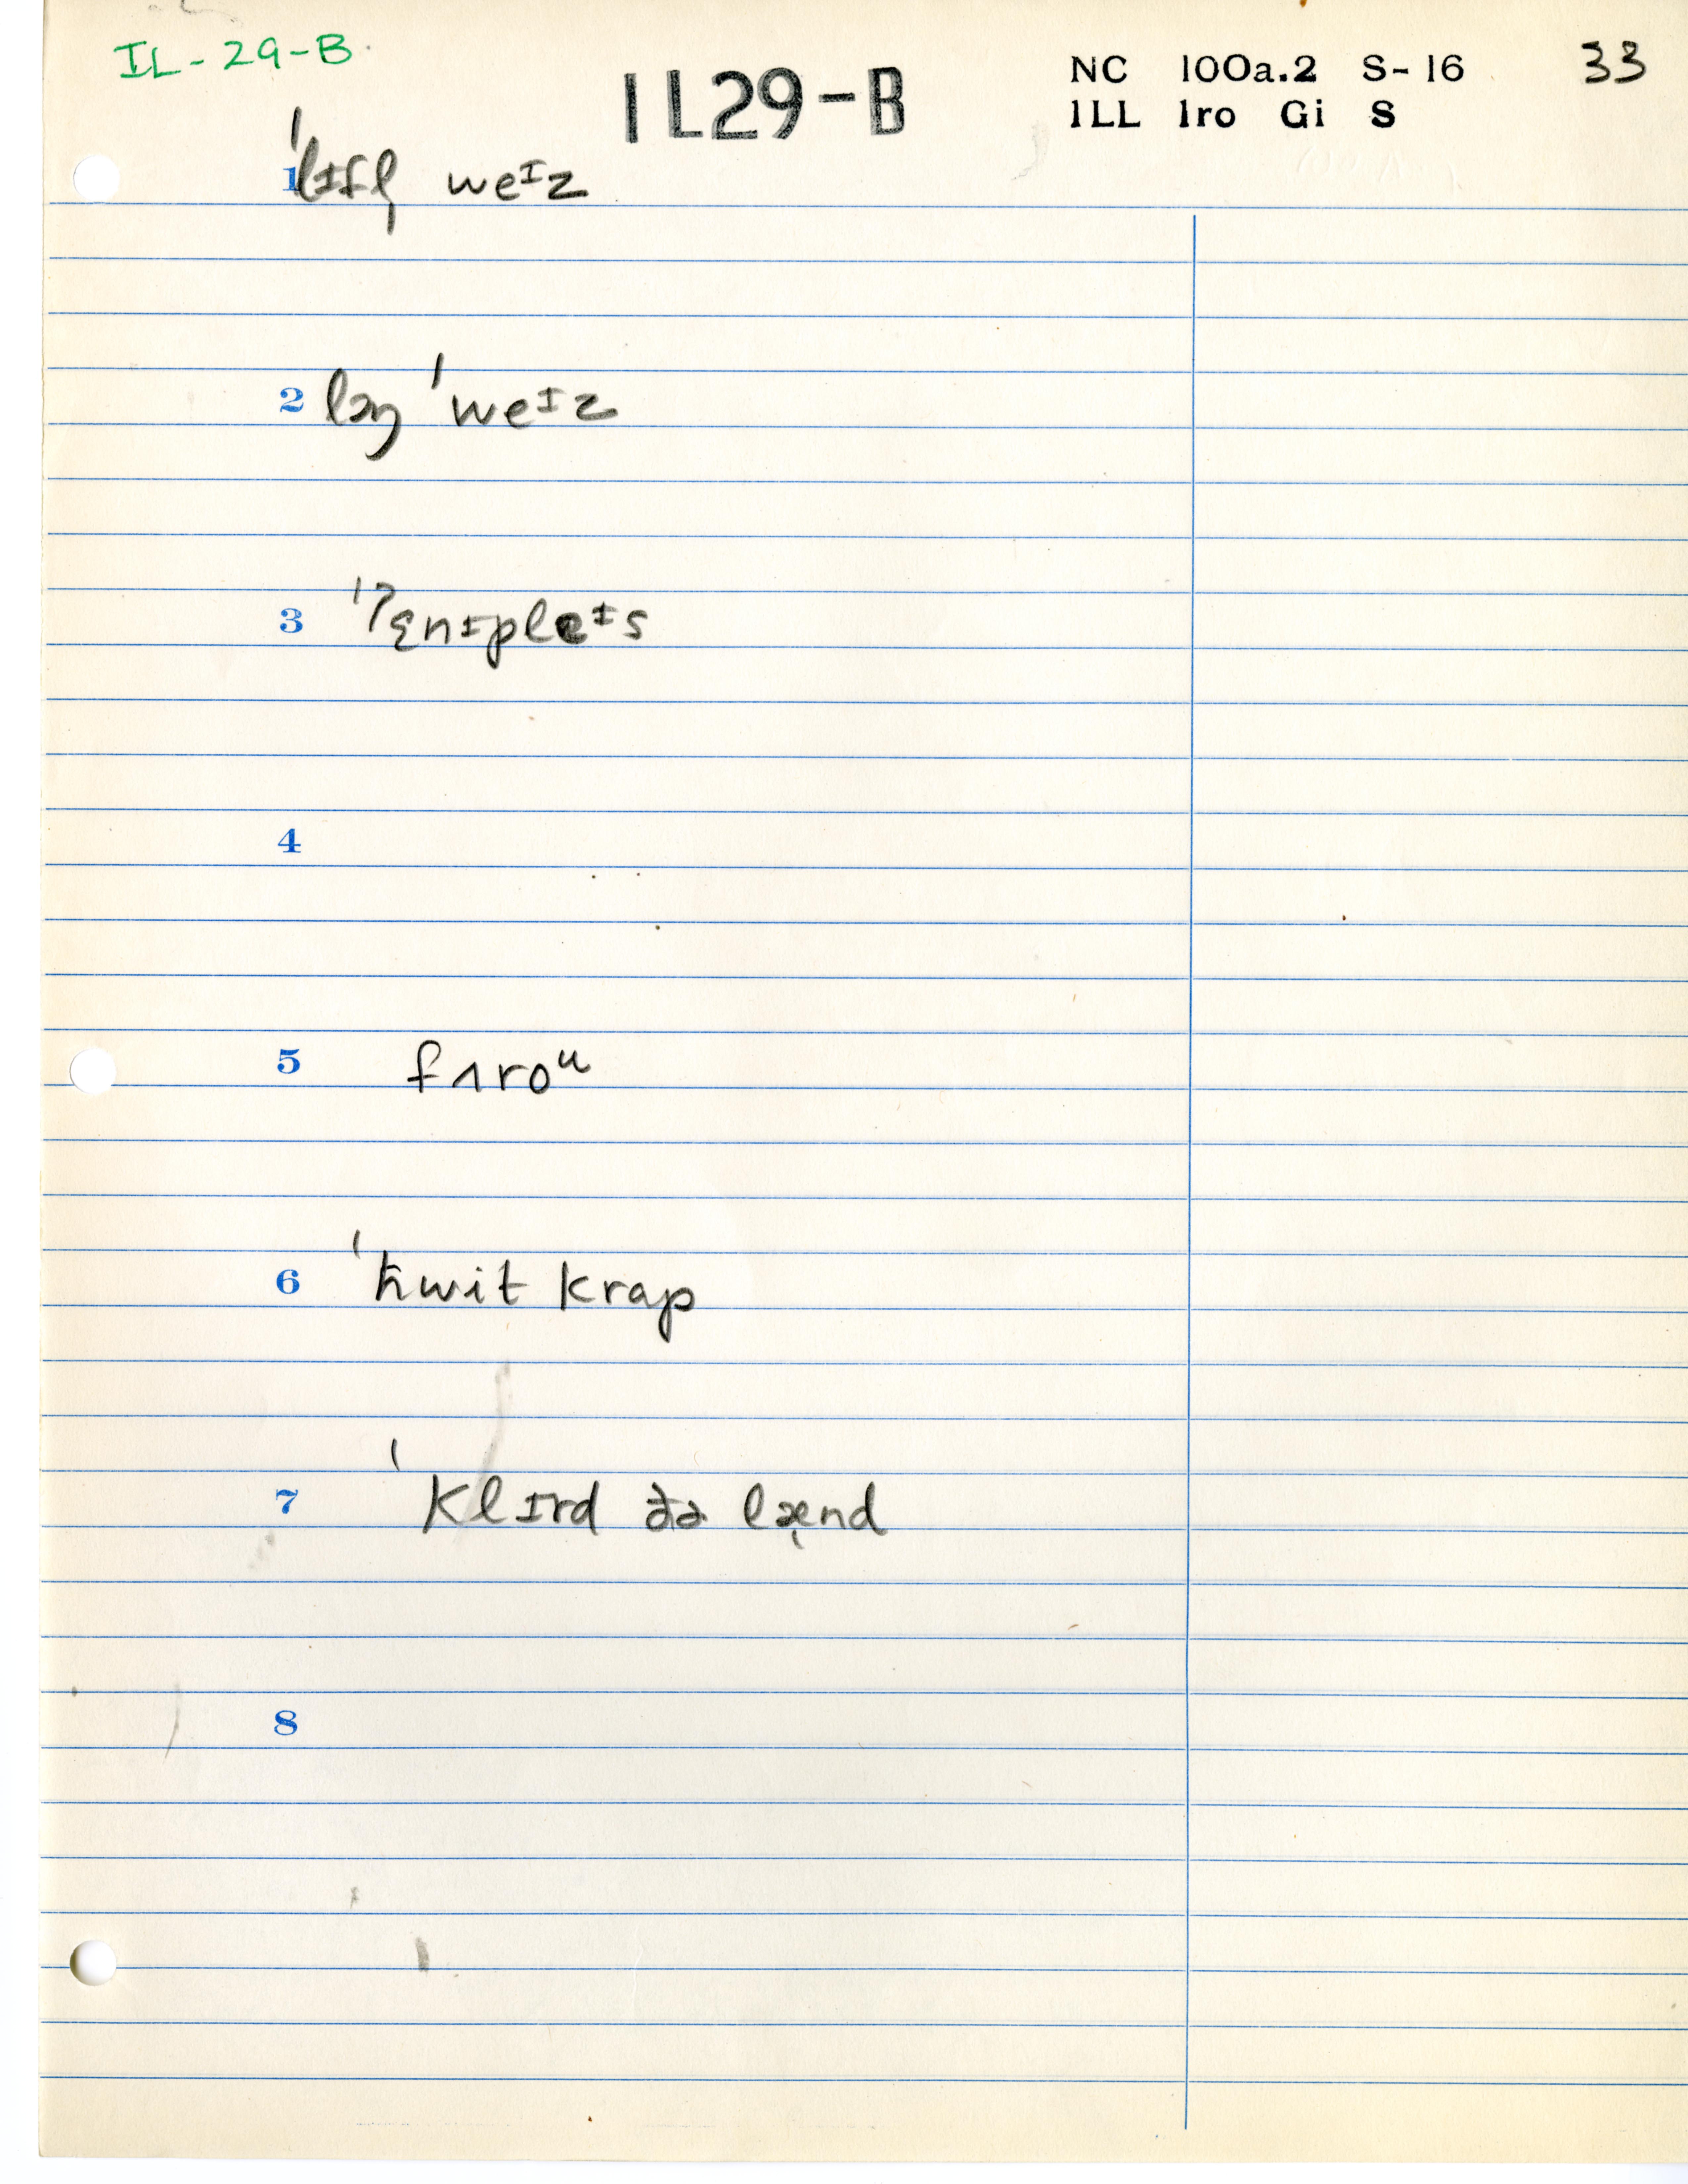 IL-29-B.
IL29-B
NC 100a.2 S-16 33
ILL Iro Gi S
1 ˈlɪtl̩ weᴵz
2 lɔŋ ˈweᴵz
3 ˈʔɛnɪpleᴵs
4
5 fʌroᵘ
6 ˈʍwit krap
7 ˈklɪrd ðə læ̨nd
8